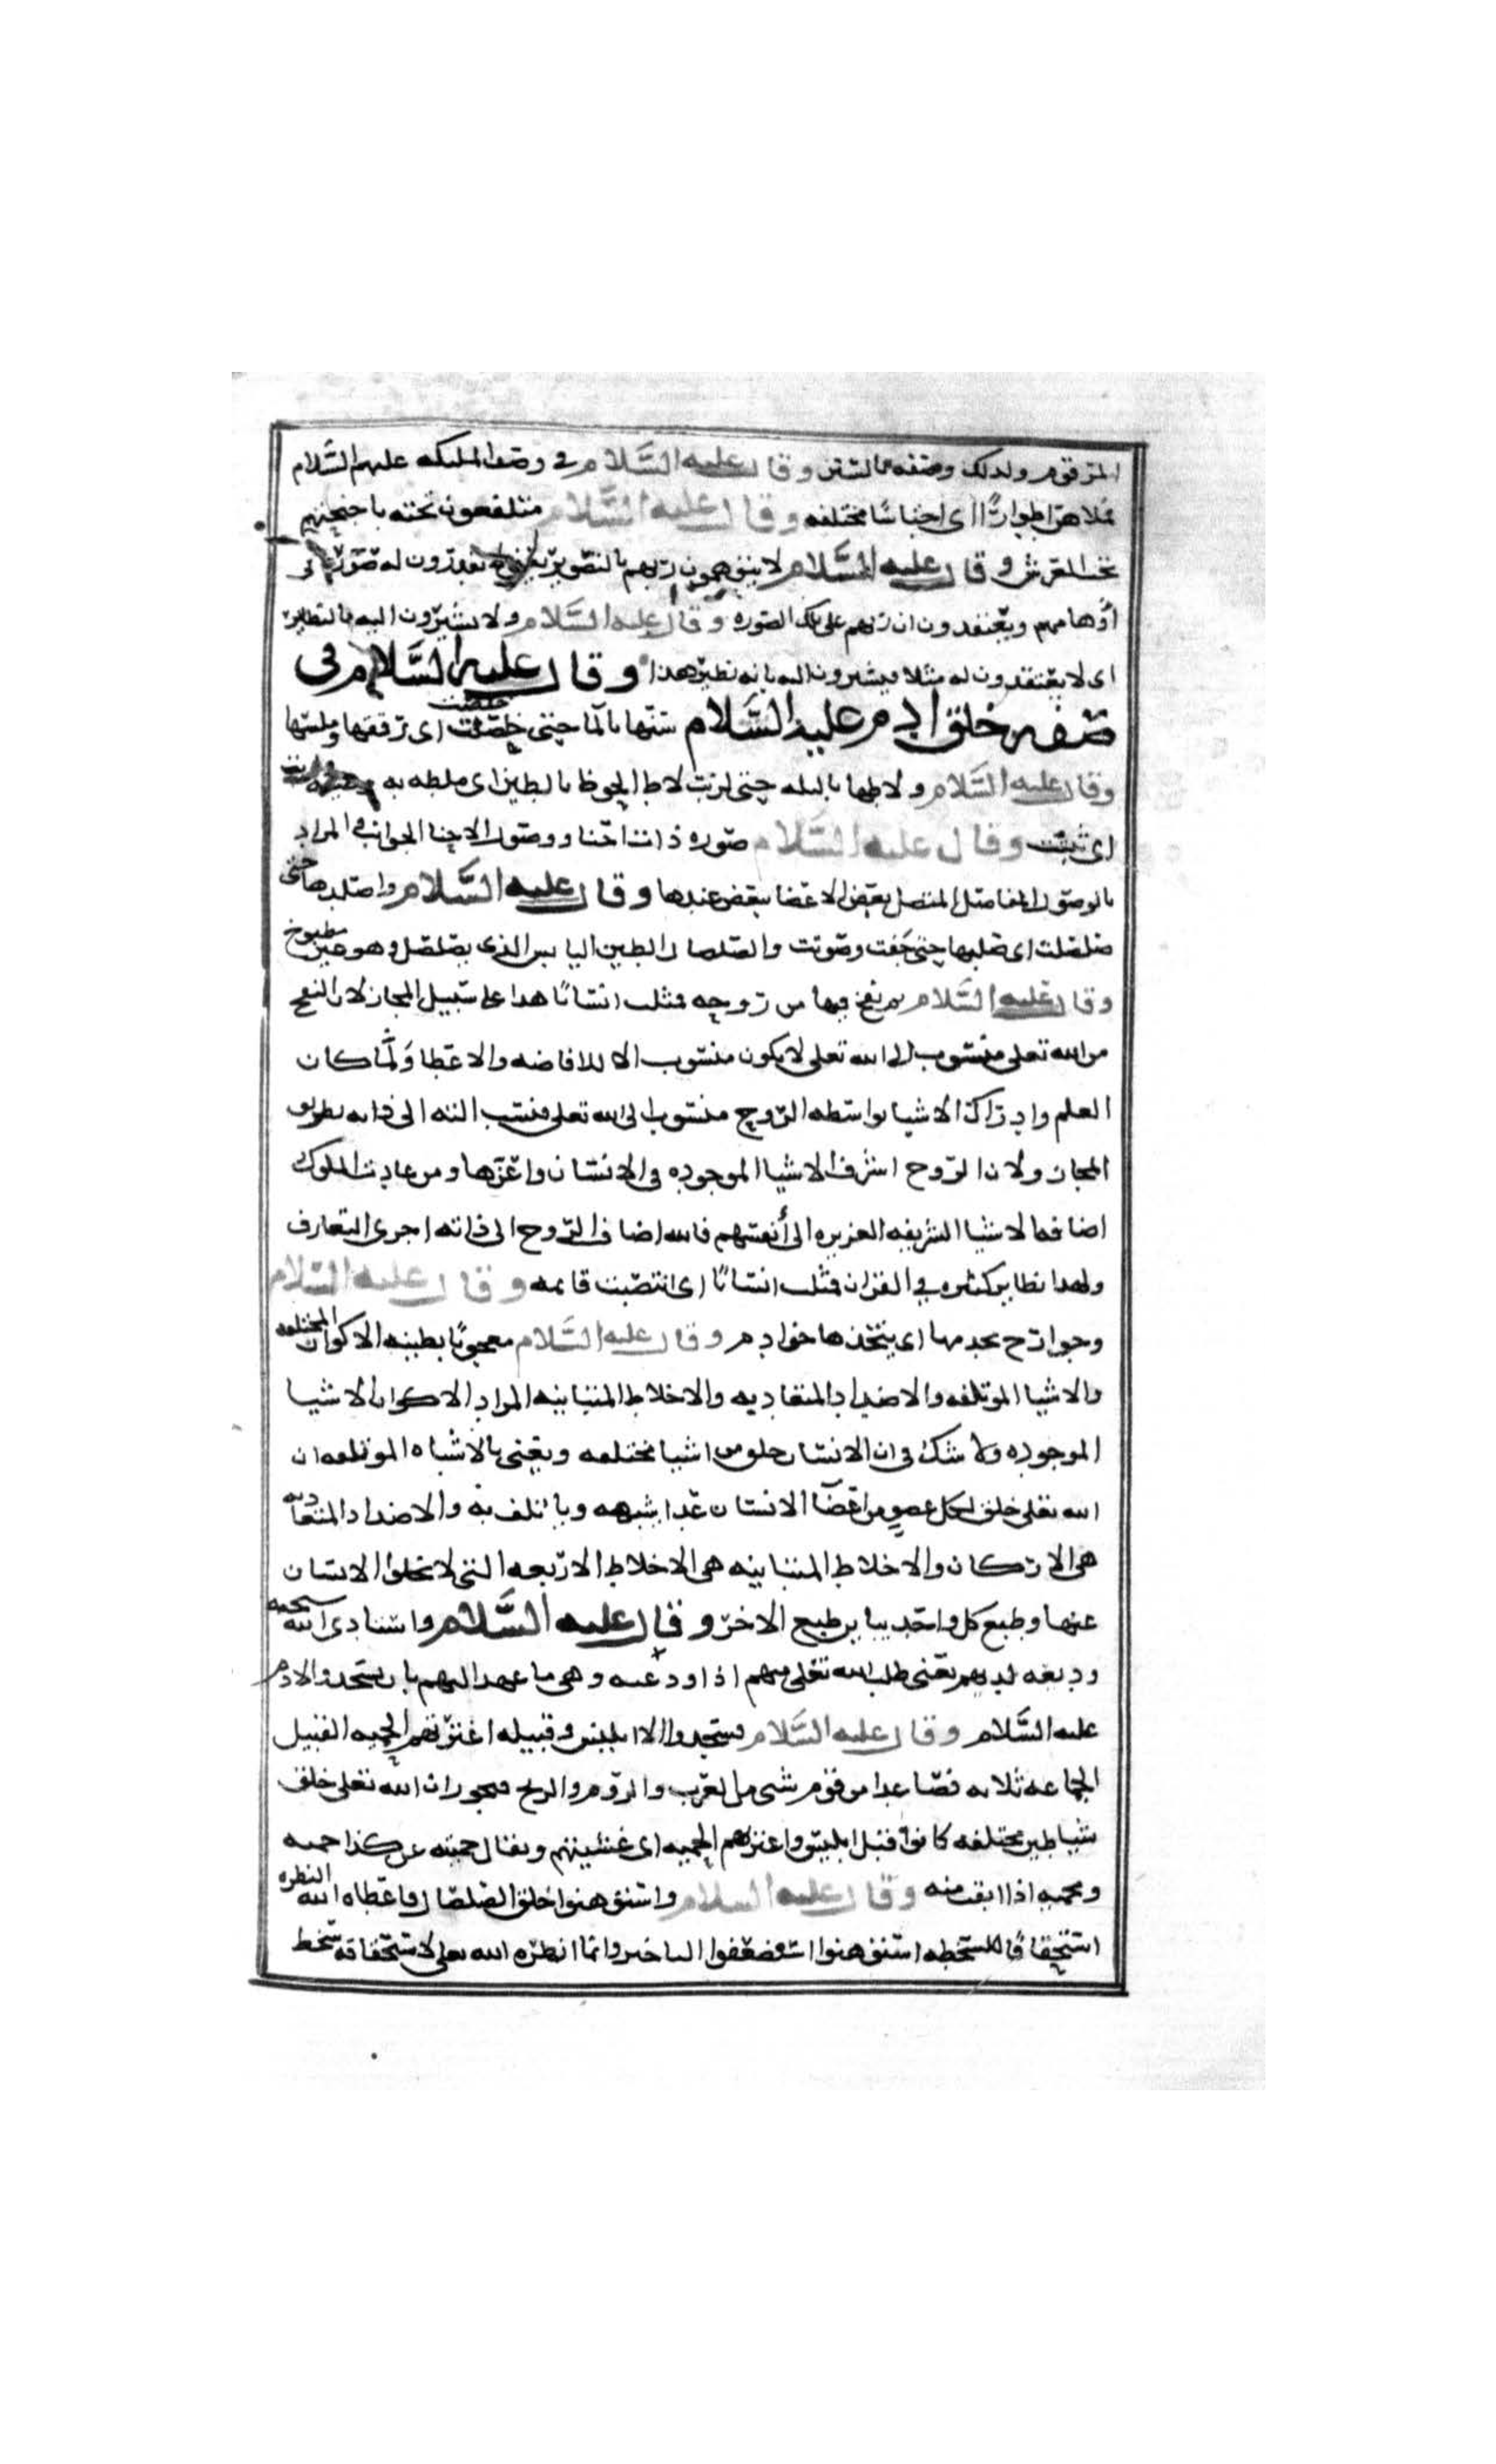 المرقوم ولذلك وصفه بالستر وقال عليه السلام في وصف الملئكه عليهم السلام
فملاهن اطوارًا اى اجناسًا مختلفه وقال عليه السلام متلفعون تحته باجنحتهم
تحت العرش وقال عليه السلام لا يتوهمون ربهم بالتصوير يقدرون له صورًا في
أوهامهم ويعتقدون ان ربهم على تلك الصوره وقال عليه السلام ولا يشيرون اليه بالنظاير
اى لا يعتقدون له مثلا فيشيرون اليه بانه نظير هذا وقال عليه السلام فى
صفه خلق ادم عليه السلام سنّها بالما حتى خلصت اى رققها وملسها
وقال عليه السلام ولاطها بالبله حتى لزبت لاط الحوض بالطين اى ملطه به
اى ثبتت وقال عليه السلام صوره ذات احنا ووصول الاحنا الجوانب والمراد
بالوصول المفاصل المتصل بعض الاعضا ببعض عندها وقال عليه السلام واصلدها حتى
صلصلت اى صلبها حتى جفت وصوتت والصلصال الطين اليابس الذى يصلصل وهو غير مطبوخ
وقال عليه السلام ثم نفخ فيها من روحه فمثلت انسانًا هذا على سبيل المجاز لان النفخ
من الله تعلى منسوب الى الله تعلى لا يكون منسوب الا للافاضه والاعطا ولمّا كان
العلم وادراك الاشيا بواسطه الروح منسوب الى الله تعلى فنسب الله الى ذاته بطريق
المجاز ولان الروح اشرف الاشيا الموجوده في الانسان واعزها ومن عادت الملوك
اضافه الاشيا الشريفه العزيزه الى أنفسهم فالله اضاف الروح الى ذاته اجرى المتعارف
ولهذا نظاير كثيره في القران فمثلت انسانًا اى انتصبت قايمه وقال عليه السلام
وجوارح يخدمها اى يتخذها خوادم وقال عليه السلام معجونًا بطينه الاكوان المختلفه
والاشيا الموتلفه والاضداد المتعاديه والاخلاط المتباينه المراد الاكوان الاشيا
الموجوده ولا شك فى ان الانسان خلق من اشيا مختلفه ويعنى بالاشباه الموتلفه ان
الله تعلى خلق لكل عضو من اعضآ الانسان غدا يشبهه ويأتلف به والاضداد المتعاديه
هى الاركان والاخلاط المتباينه هى الاخلاط الاربعه التى لا يخلوا الانسان
عنها وطبع كل واحد يباين طبع الاخر وقال عليه السلام واستادى الله سبحنه
وديعه لديهم يعنى طلب الله تعلى منهم اذا ودعته وهى ما عهد اليهم بان يسجدوا لادم
عليه السلام وقال عليه السلام فسجدوا الا ابليس وقبيله اعترتهم الحميه القبيل
الجماعه ثلاثه فصاعدا من قوم شتى مثل العرب والروم والزنج فيجوز ان الله تعلى خلق
شياطين مختلفه كانوا قبل ابليس واعترتهم الحميه اى غشيتهم ويقال حميته عن كذا حميه
ومحميه اذا انفت منه وقال عليه السلام واستوهنوا خلق الصلصال فاعطاه الله النظره
استحقاقًا للسخطه استوهنوا استضعفوا التاخير وانما انظره الله تعلى لاستحقاقه سخط